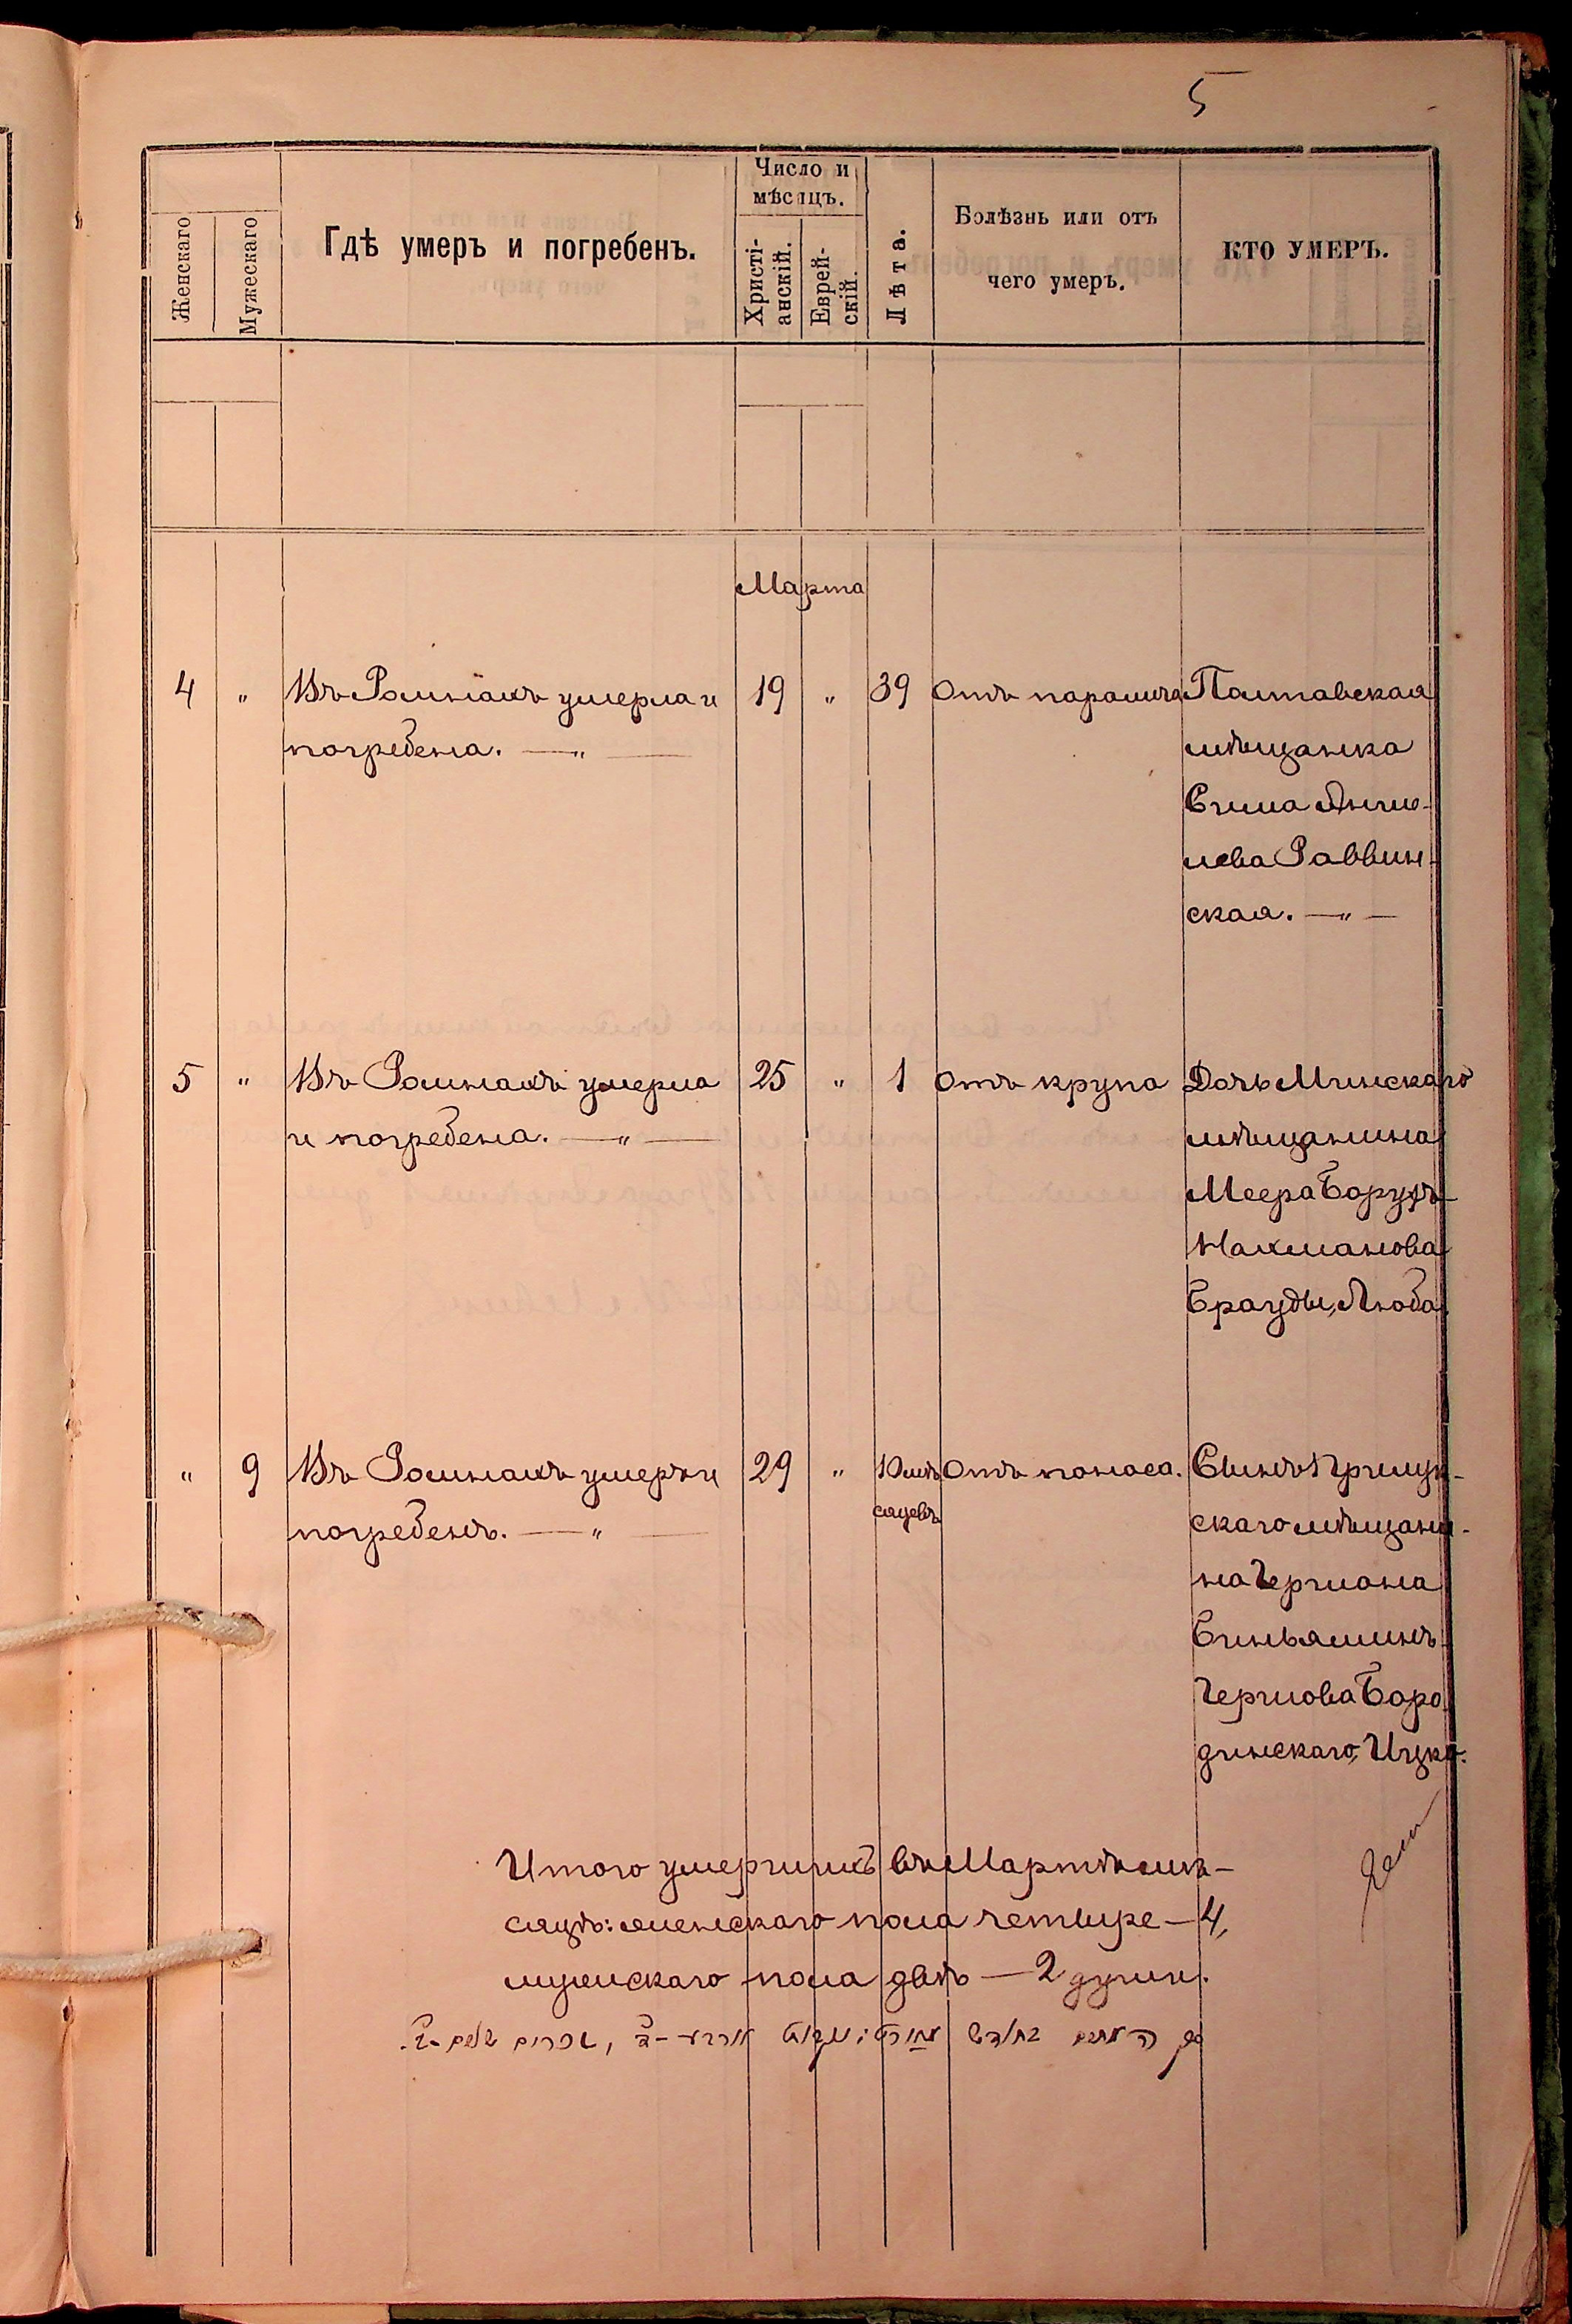 5
Женскаго
Мужескаго
Гдѣ умеръ и погребенъ.
Число и
мѣсяцъ.
Христі-
анскій.
Еврей-
скій.
Лѣта.
Болѣзнь или отъ
чего умеръ.
КТО УМЕРЪ.
Марта
4 " Въ Ромнахъ умерла и 19 " 39 Отъ паралича Полтавская
погребена. — " — мѣщанка
Сима
лева Раввин-
ская. — " —
5 " Въ Ромнахъ умерла 25 " 1 Отъ крупа Дочь Минскаго
и погребена. — " — мѣщанина
Меера Борухъ-
Нахманова
Брауды, Люба.
" 9 Въ Ромнахъ умеръ и 29 " 10 мѣ- Отъ поноса. Сынъ Прилук-
погребенъ. — " — сяцевъ скаго мѣщани-
на Гермона
Биньяминъ-
Гермова Боро-
динскаго, Ицко.
Итого умершихъ въ Мартѣ мѣ-
сяцѣ: женскаго пола четыре — 4,
мужскаго пола двѣ — 2 души.